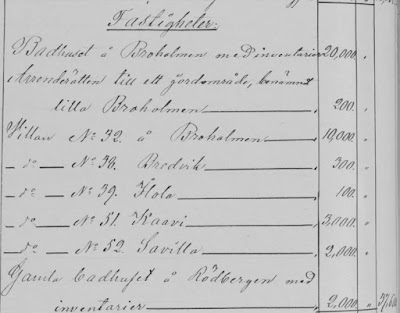 Fastigheter:
Badhuset å Broholmen med inventarier 20,000. "
Arrenderätten till ett jordområde, benämnt
lilla Broholmen 200. "
Villan No 32. å Broholmen 10,000. "
— do — No 38. Bredvik 300. "
— do — No 39. Kola 100. "
— do — No 51. Kaavi 3,000. "
— do — No 52. Savilla 2,000. "
Gamla badhuset å Rödbergen med
inventarier 2,000. "